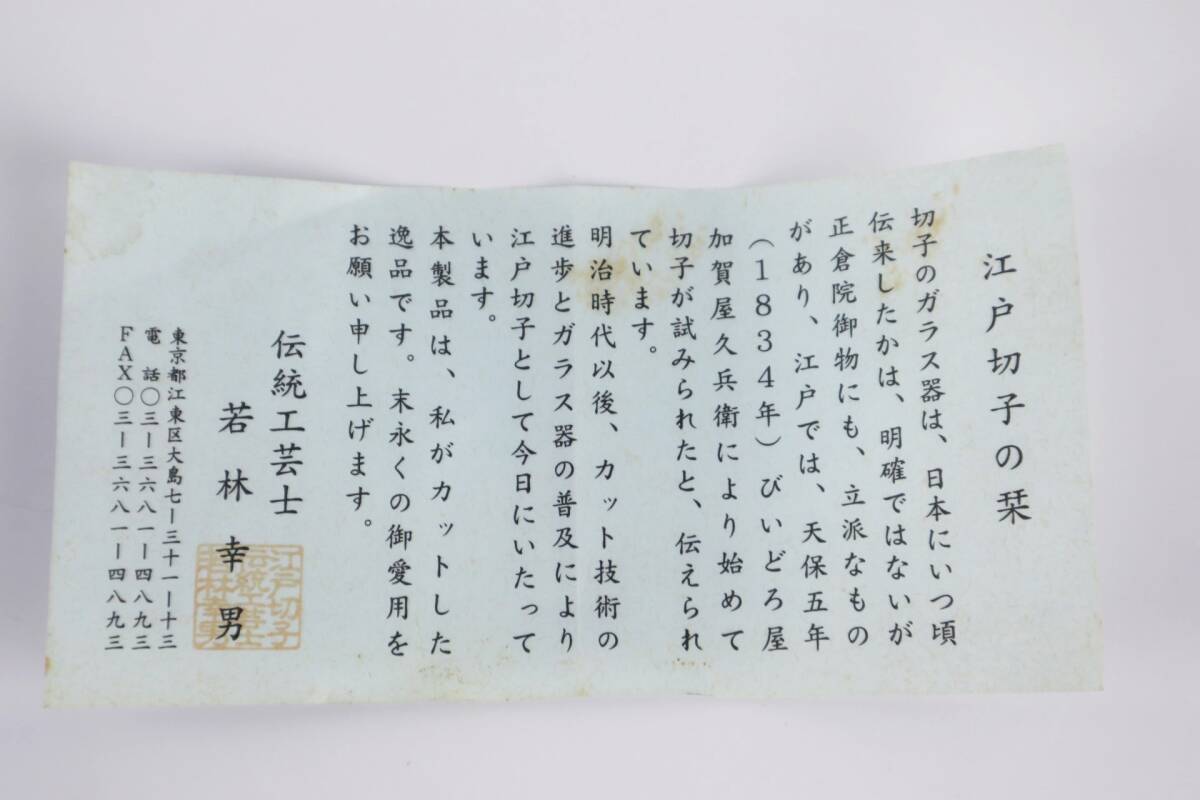 江戸切子の栞
切子のガラス器は、日本にいつ頃
伝来したかは、明確ではないが
正倉院御物にも、立派なもの
があり、江戸では、天保五年
（1834年）びいどろ屋
加賀屋久兵衛により始めて
切子が試みられたと、伝えられ
ています。
明治時代以後、カット技術の
進歩とガラス器の普及により
江戸切子として今日にいたって
います。
本製品は、私がカットした
逸品です。末永くの御愛用を
お願い申し上げます。
伝統工芸士
若林幸男
江戸切子
伝統工芸士
若林幸男
東京都江東区大島七ー三十一ー十三
電話〇三ー三六八一ー四八九三
FAX〇三ー三六八一ー四八九三